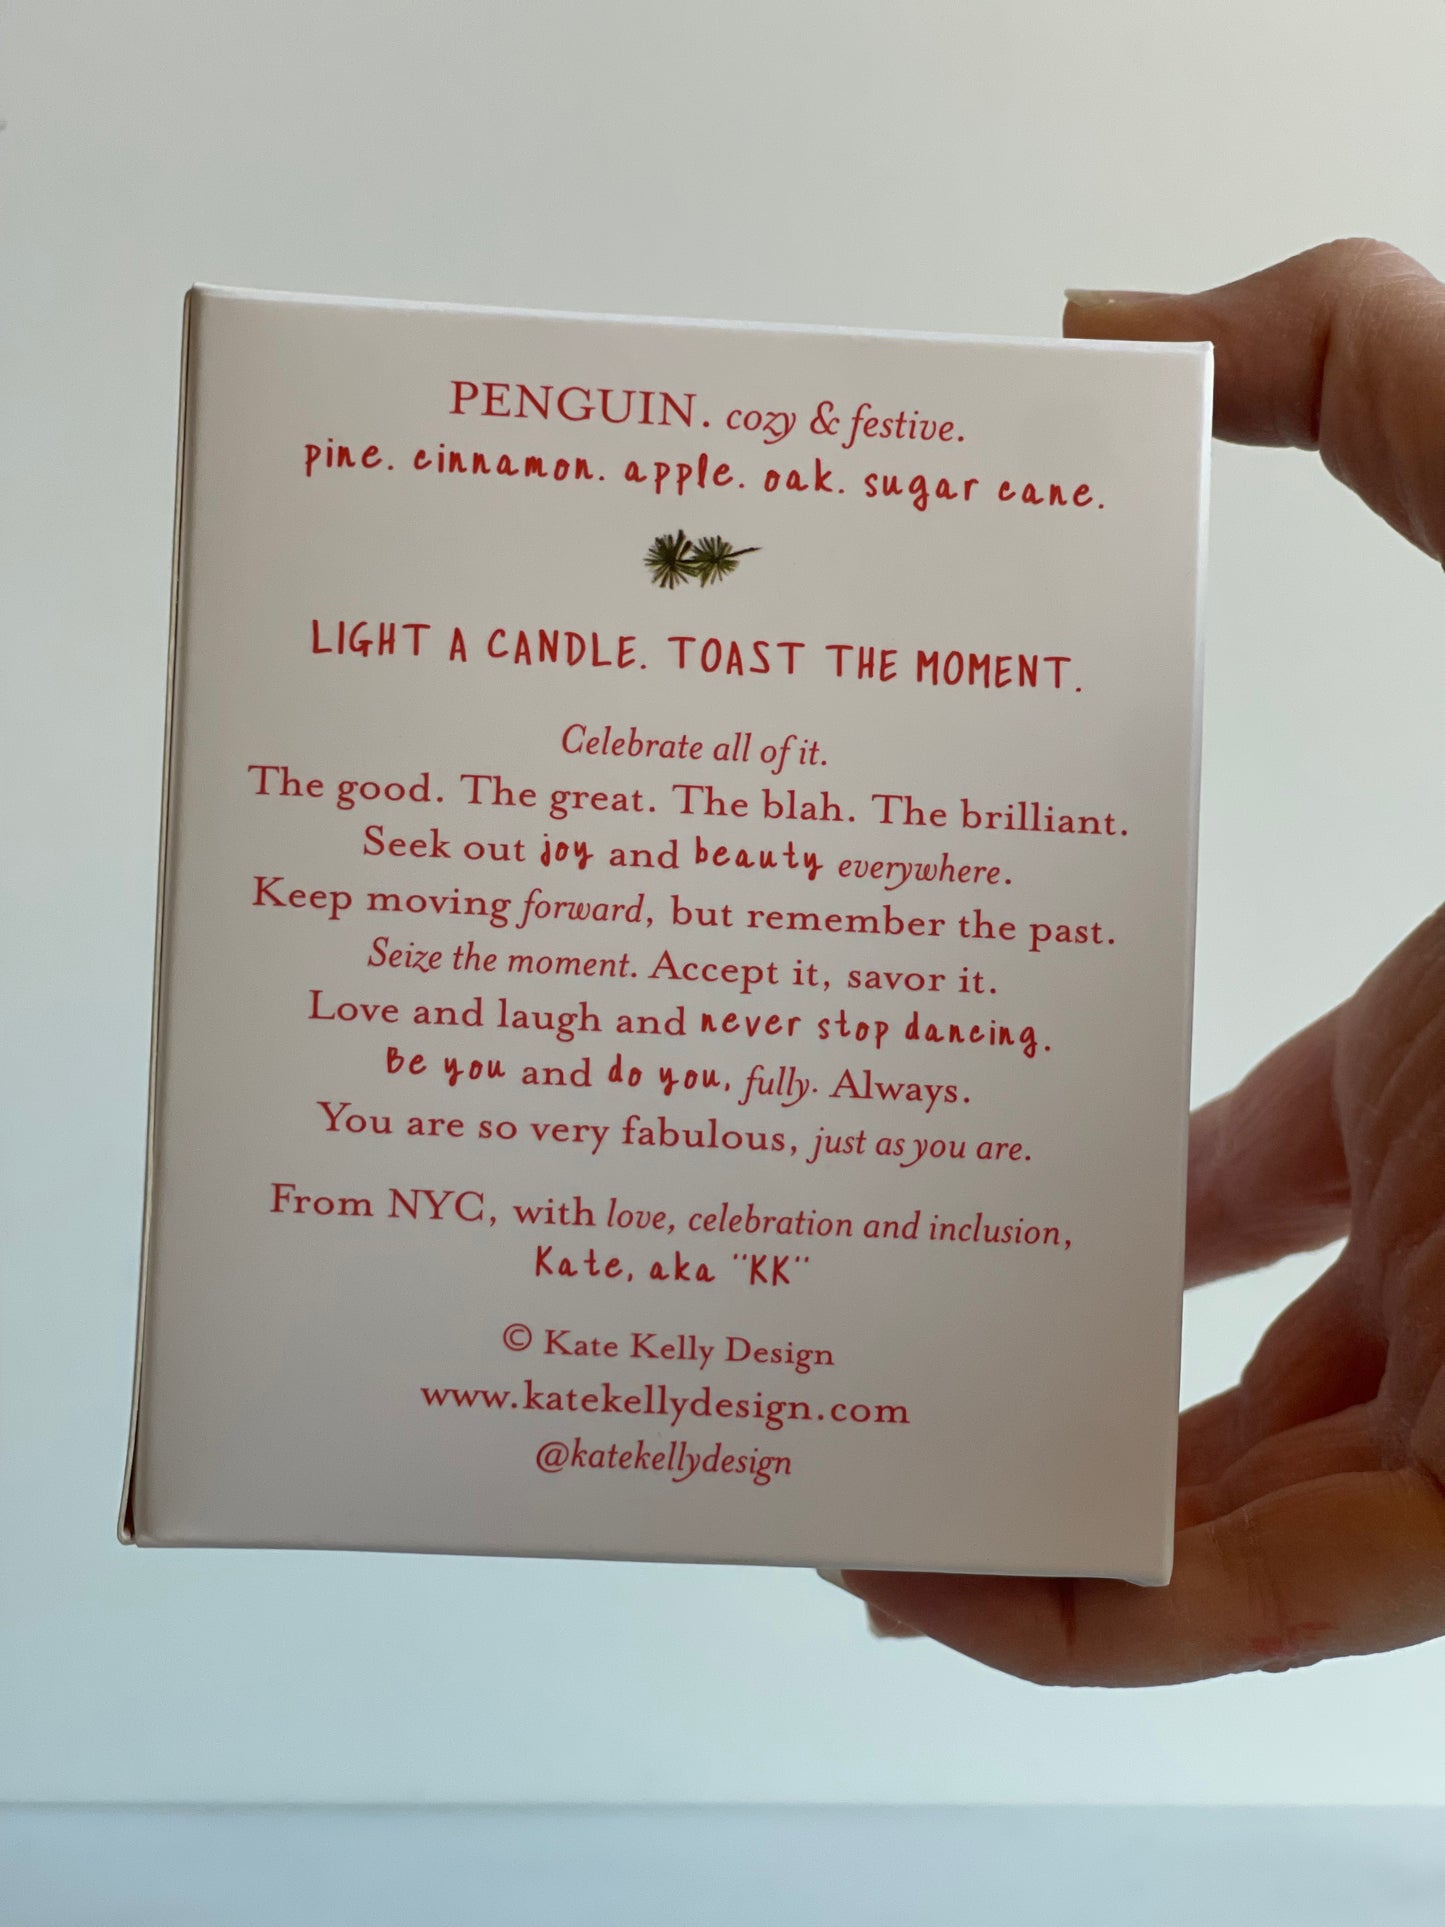 PENGUIN. cozy & festive.
pine. cinnamon. apple. oak. sugar cane.
LIGHT A CANDLE. TOAST THE MOMENT.
Celebrate all of it.
The good. The great. The blah. The brilliant.
Seek out joy and beauty everywhere.
Keep moving forward, but remember the past.
Seize the moment. Accept it, savor it.
Love and laugh and never stop dancing.
Be you and do you, fully. Always.
You are so very fabulous, just as you are.
From NYC, with love, celebration and inclusion,
Kate, aka "KK"
© Kate Kelly Design
www.katekellydesign.com
@katekellydesign